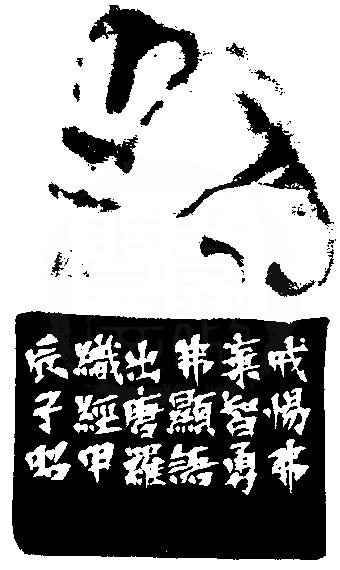 戒惕弗
棄智勇
弗顯語
出唐羅
織經中
辰子